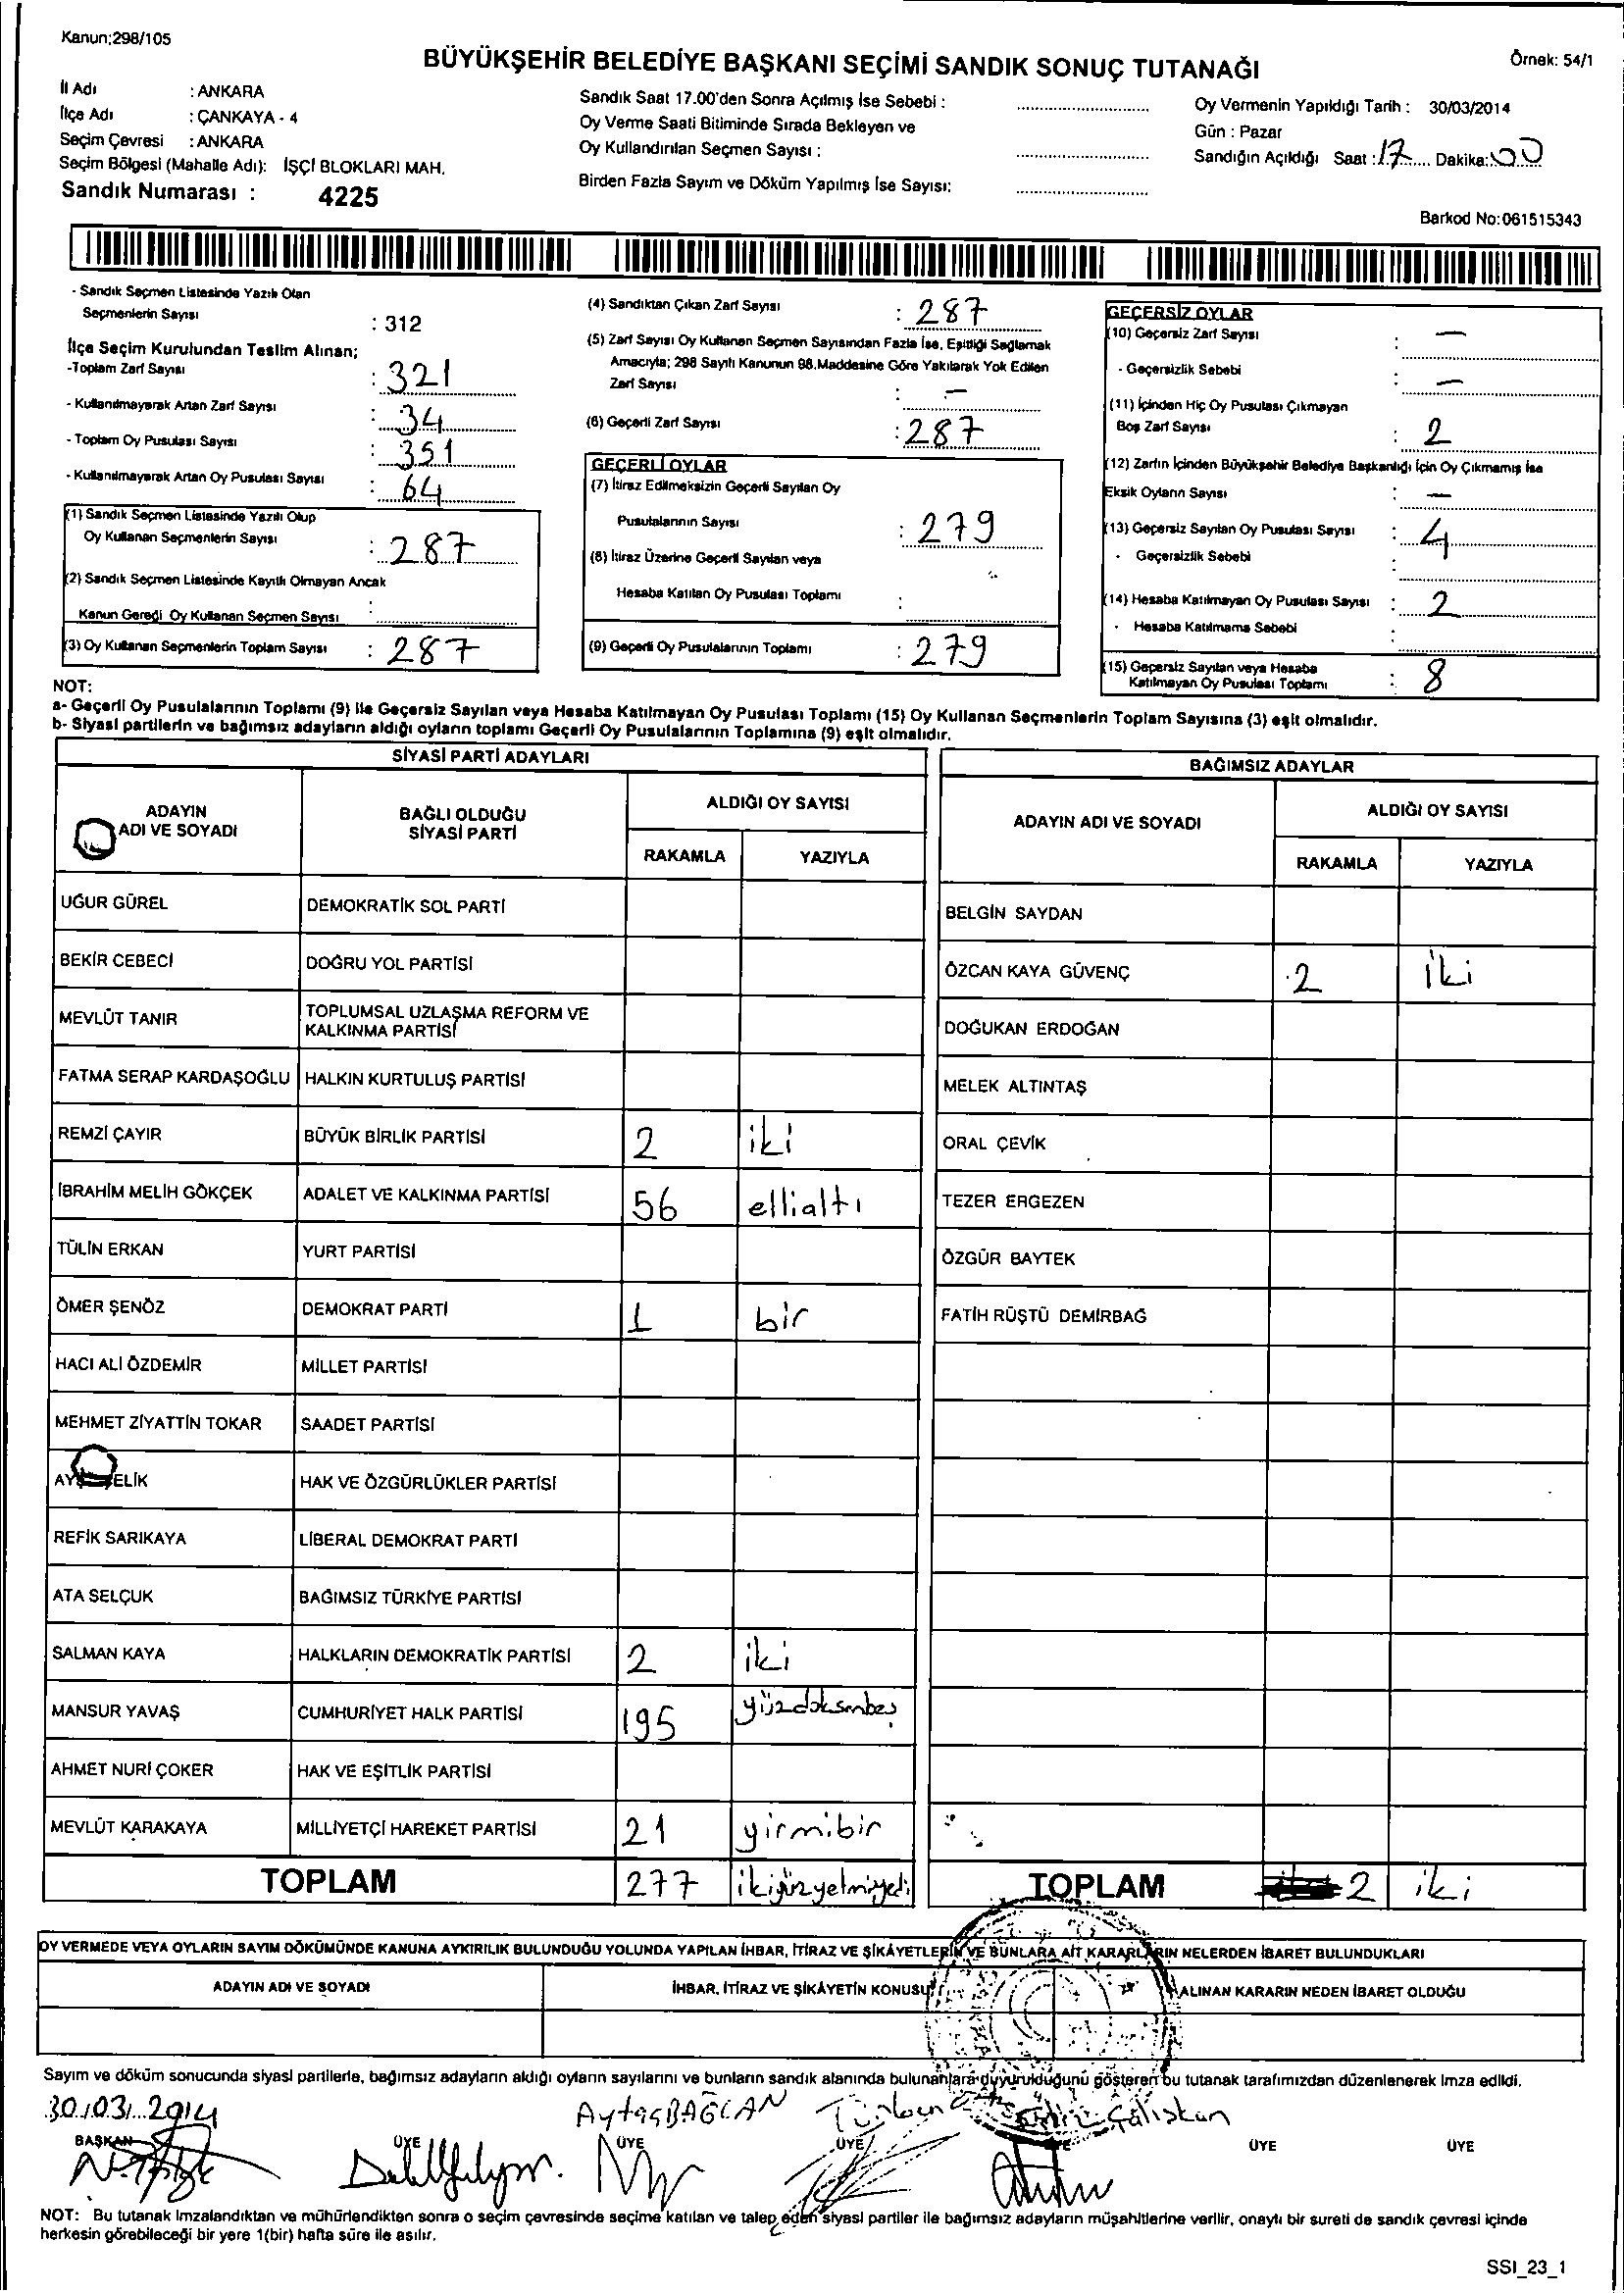 Kanun;298/105
BÜYÜKŞEHİR BELEDİYE BAŞKANI SEÇİMİ SANDIK SONUÇ TUTANAĞI
Örnek: 54/1
İl Adı : ANKARA
İlçe Adı : ÇANKAYA - 4
Seçim Çevresi : ANKARA
Seçim Bölgesi (Mahalle Adı): İŞÇİ BLOKLARI MAH.
Sandık Numarası : 4225
Sandık Saat 17.00'den Sonra Açılmış İse Sebebi :
Oy Verme Saati Bitiminde Sırada Bekleyen ve
Oy Kullandırılan Seçmen Sayısı :
Birden Fazla Sayım ve Döküm Yapılmış İse Sayısı:
Oy Vermenin Yapıldığı Tarih : 30/03/2014
Gün : Pazar
Sandığın Açıldığı Saat : 17 Dakika: 00
Barkod No:061515343
- Sandık Seçmen Listesinde Yazılı Olan
Seçmenlerin Sayısı : 312
İlçe Seçim Kurulundan Teslim Alınan;
-Toplam Zarf Sayısı : 321
- Kullanılmayarak Artan Zarf Sayısı : 34
- Toplam Oy Pusulası Sayısı : 351
- Kullanılmayarak Artan Oy Pusulası Sayısı : 64
(1) Sandık Seçmen Listesinde Yazılı Olup
Oy Kullanan Seçmenlerin Sayısı : 287
(2) Sandık Seçmen Listesinde Kayıtlı Olmayan Ancak
Kanun Gereği Oy Kullanan Seçmen Sayısı :
(3) Oy Kullanan Seçmenlerin Toplam Sayısı : 287
(4) Sandıktan Çıkan Zarf Sayısı : 287
(5) Zarf Sayısı Oy Kullanan Seçmen Sayısından Fazla İse, Eşitliği Sağlamak
Amacıyla; 298 Sayılı Kanunun 98.Maddesine Göre Yakılarak Yok Edilen
Zarf Sayısı : -
(6) Geçerli Zarf Sayısı : 287
GEÇERLİ OYLAR
(7) İtiraz Edilmeksizin Geçerli Sayılan Oy
Pusulalarının Sayısı : 279
(8) İtiraz Üzerine Geçerli Sayılan veya
Hesaba Katılan Oy Pusulası Toplamı :
(9) Geçerli Oy Pusulalarının Toplamı : 279
GEÇERSİZ OYLAR
(10) Geçersiz Zarf Sayısı : -
- Geçersizlik Sebebi : -
(11) İçinden Hiç Oy Pusulası Çıkmayan
Boş Zarf Sayısı : 2
(12) Zarfın İçinden Büyükşehir Belediye Başkanlığı İçin Oy Çıkmamış İse
Eksik Oyların Sayısı : -
(13) Geçersiz Sayılan Oy Pusulası Sayısı : 4
- Geçersizlik Sebebi :
(14) Hesaba Katılmayan Oy Pusulası Sayısı : 2
- Hesaba Katılmama Sebebi :
(15) Geçersiz Sayılan veya Hesaba
Katılmayan Oy Pusulası Toplamı : 8
NOT:
a- Geçerli Oy Pusulalarının Toplamı (9) ile Geçersiz Sayılan veya Hesaba Katılmayan Oy Pusulası Toplamı (15) Oy Kullanan Seçmenlerin Toplam Sayısına (3) eşit olmalıdır.
b- Siyasi partilerin ve bağımsız adayların aldığı oyların toplamı Geçerli Oy Pusulalarının Toplamına (9) eşit olmalıdır.
SİYASİ PARTİ ADAYLARI
ADAYIN ADI VE SOYADI
BAĞLI OLDUĞU SİYASİ PARTİ
ALDIĞI OY SAYISI
RAKAMLA YAZIYLA
UĞUR GÜREL DEMOKRATİK SOL PARTİ
BEKİR CEBECİ DOĞRU YOL PARTİSİ
MEVLÜT TANIR TOPLUMSAL UZLAŞMA REFORM VE KALKINMA PARTİSİ
FATMA SERAP KARDAŞOĞLU HALKIN KURTULUŞ PARTİSİ
REMZİ ÇAYIR BÜYÜK BİRLİK PARTİSİ 2 iki
İBRAHİM MELİH GÖKÇEK ADALET VE KALKINMA PARTİSİ 56 ellialtı
TÜLİN ERKAN YURT PARTİSİ
ÖMER ŞENÖZ DEMOKRAT PARTİ 1 bir
HACI ALİ ÖZDEMİR MİLLET PARTİSİ
MEHMET ZİYATTİN TOKAR SAADET PARTİSİ
HAK VE ÖZGÜRLÜKLER PARTİSİ
REFİK SARIKAYA LİBERAL DEMOKRAT PARTİ
ATA SELÇUK BAĞIMSIZ TÜRKİYE PARTİSİ
SALMAN KAYA HALKLARIN DEMOKRATİK PARTİSİ 2 iki
MANSUR YAVAŞ CUMHURİYET HALK PARTİSİ 195 yüzdoksanbeş
AHMET NURİ ÇOKER HAK VE EŞİTLİK PARTİSİ
MEVLÜT KARAKAYA MİLLİYETÇİ HAREKET PARTİSİ 21 yirmibir
TOPLAM 277 ikiyüzyetmişyedi
BAĞIMSIZ ADAYLAR
ADAYIN ADI VE SOYADI
ALDIĞI OY SAYISI
RAKAMLA YAZIYLA
BELGİN SAYDAN
ÖZCAN KAYA GÜVENÇ 2 iki
DOĞUKAN ERDOĞAN
MELEK ALTINTAŞ
ORAL ÇEVİK
TEZER ERGEZEN
ÖZGÜR BAYTEK
FATİH RÜŞTÜ DEMİRBAĞ
TOPLAM 2 iki
OY VERMEDE VEYA OYLARIN SAYIM DÖKÜMÜNDE KANUNA AYKIRILIK BULUNDUĞU YOLUNDA YAPILAN İHBAR, İTİRAZ VE ŞİKÂYETLERİN VE BUNLARA AİT KARARLARIN NELERDEN İBARET BULUNDUKLARI
ADAYIN ADI VE SOYADI İHBAR, İTİRAZ VE ŞİKÂYETİN KONUSU ALINAN KARARIN NEDEN İBARET OLDUĞU
Sayım ve döküm sonucunda siyasi partilerle, bağımsız adayların aldığı oyların sayılarını ve bunların sandık alanında bulunanlara duyurulduğunu gösteren bu tutanak tarafımızdan düzenlenerek imza edildi.
30/03/2014
Aytaç BAĞCAN Çalışkan
BAŞKAN ÜYE ÜYE ÜYE ÜYE ÜYE ÜYE
NOT: Bu tutanak imzalandıktan ve mühürlendikten sonra o seçim çevresinde seçime katılan ve talep eden siyasi partiler ile bağımsız adayların müşahitlerine verilir, onaylı bir sureti de sandık çevresi içinde
herkesin görebileceği bir yere 1(bir) hafta süre ile asılır.
SSI_23_1